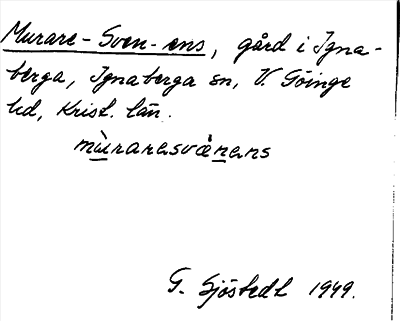 Murare-Sven-ens, gård i Igna-
berga, Ignaberga sn, V. Göinge
hd, Krist. län.
mùraresvǽnens
G. Sjöstedt 1949.